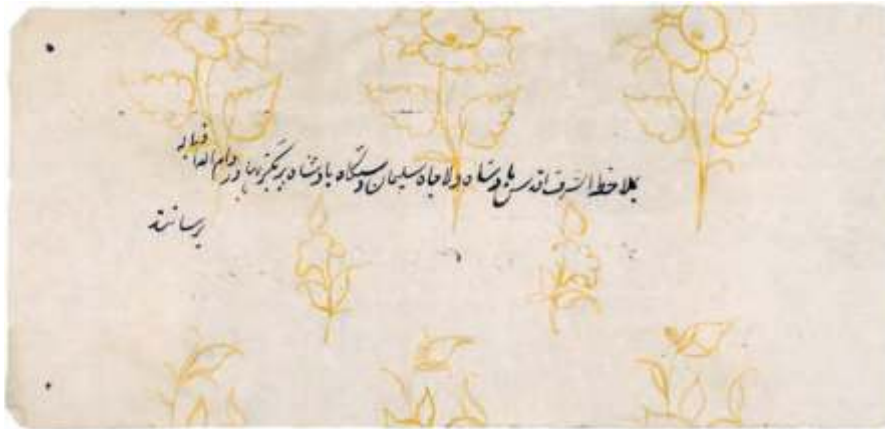 بملاحظه اشرف اقدس پادشاه والاجاه سلیمان دستگاه پادشاه پرتگیز بهادر دام اقباله
برسانند